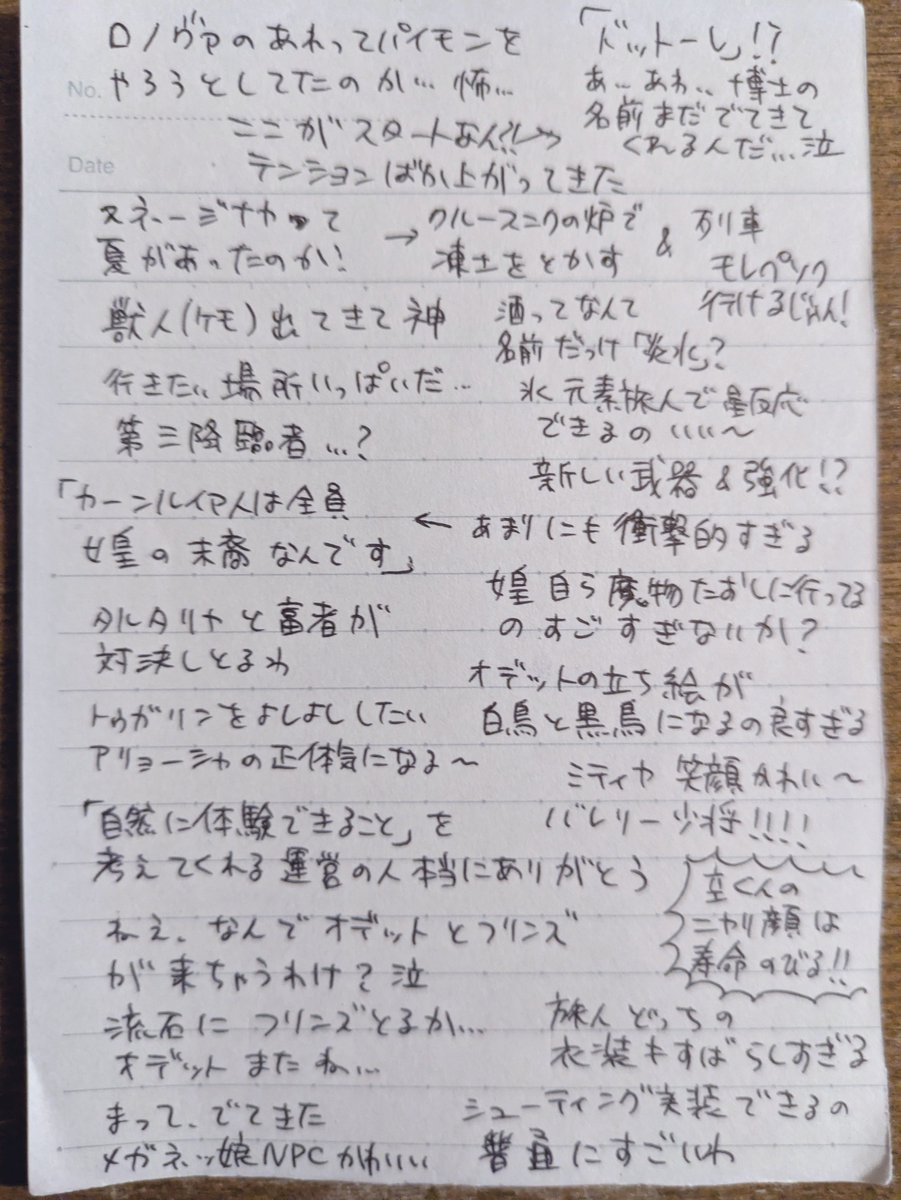 ロノヴァのあわってパイモンを
やろうとしてたのか…怖…
「ドットーレ」!?
あ…あわ…博士の
名前まだでてきて
くれるんだ…泣
ここがスタートなん?!
テンションばか上がってきた
No.
Date
スネージナヤって
夏があったのか!
→ クルースニクの炉で
凍土をとかす
& 列車
モレペソク
行けるじゃん!
獣人(ケモ)出てきて神
酒ってなんて
名前だっけ「炎水」?
行きたい場所いっぱいだ…
氷元素旅人で星反応
できるのいいい〜
第三降臨者…?
新しい武器&強化!?
「カーンルイア人は全員
女皇の末裔なんです」
← あまりにも衝撃的すぎる
女皇自ら魔物たおしに行ってる
のすごすぎないか?
タルタリヤと富者が
対決しとるわ
オデットの立ち絵が
白鳥と黒鳥になるの良すぎる
トゥガリンをよしよししたい
アリョーシャの正体気になる〜
ミティヤ 笑顔かわい〜
バレリー少将!!!!
「自然に体験できること」を
考えてくれる運営の人本当にありがとう
空くんの
ニヤリ顔は
寿命のびる!!
ねえ、なんでオデットとフリンズ
が来ちゃうわけ?泣
流石にフリンズとるか…
オデットまたね…
旅人どっちの
衣装もすばらしすぎる
まって、でてきた
メガネッ娘NPCかわいい
シューティング実装できるの
普通にすごいわ